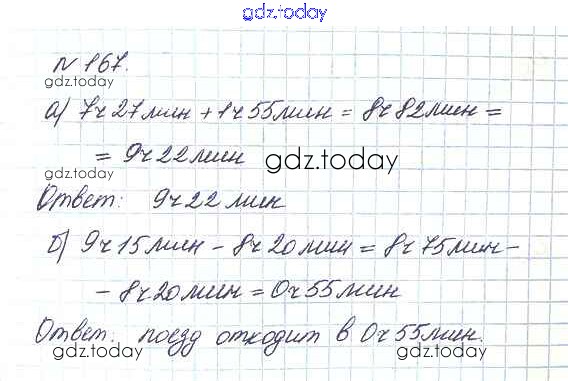 gdz.today
№ 167.
gdz.today
а) 7ч 27 мин + 1ч 55 мин = 8ч 82 мин =
= 9ч 22 мин gdz.today
Ответ: 9ч 22 мин
gdz.today
б) 9ч 15 мин - 8ч 20 мин = 8ч 75 мин -
- 8ч 20 мин = 0ч 55 мин
gdz.today
Ответ: поезд отходит в 0ч 55 мин.
gdz.today gdz.today